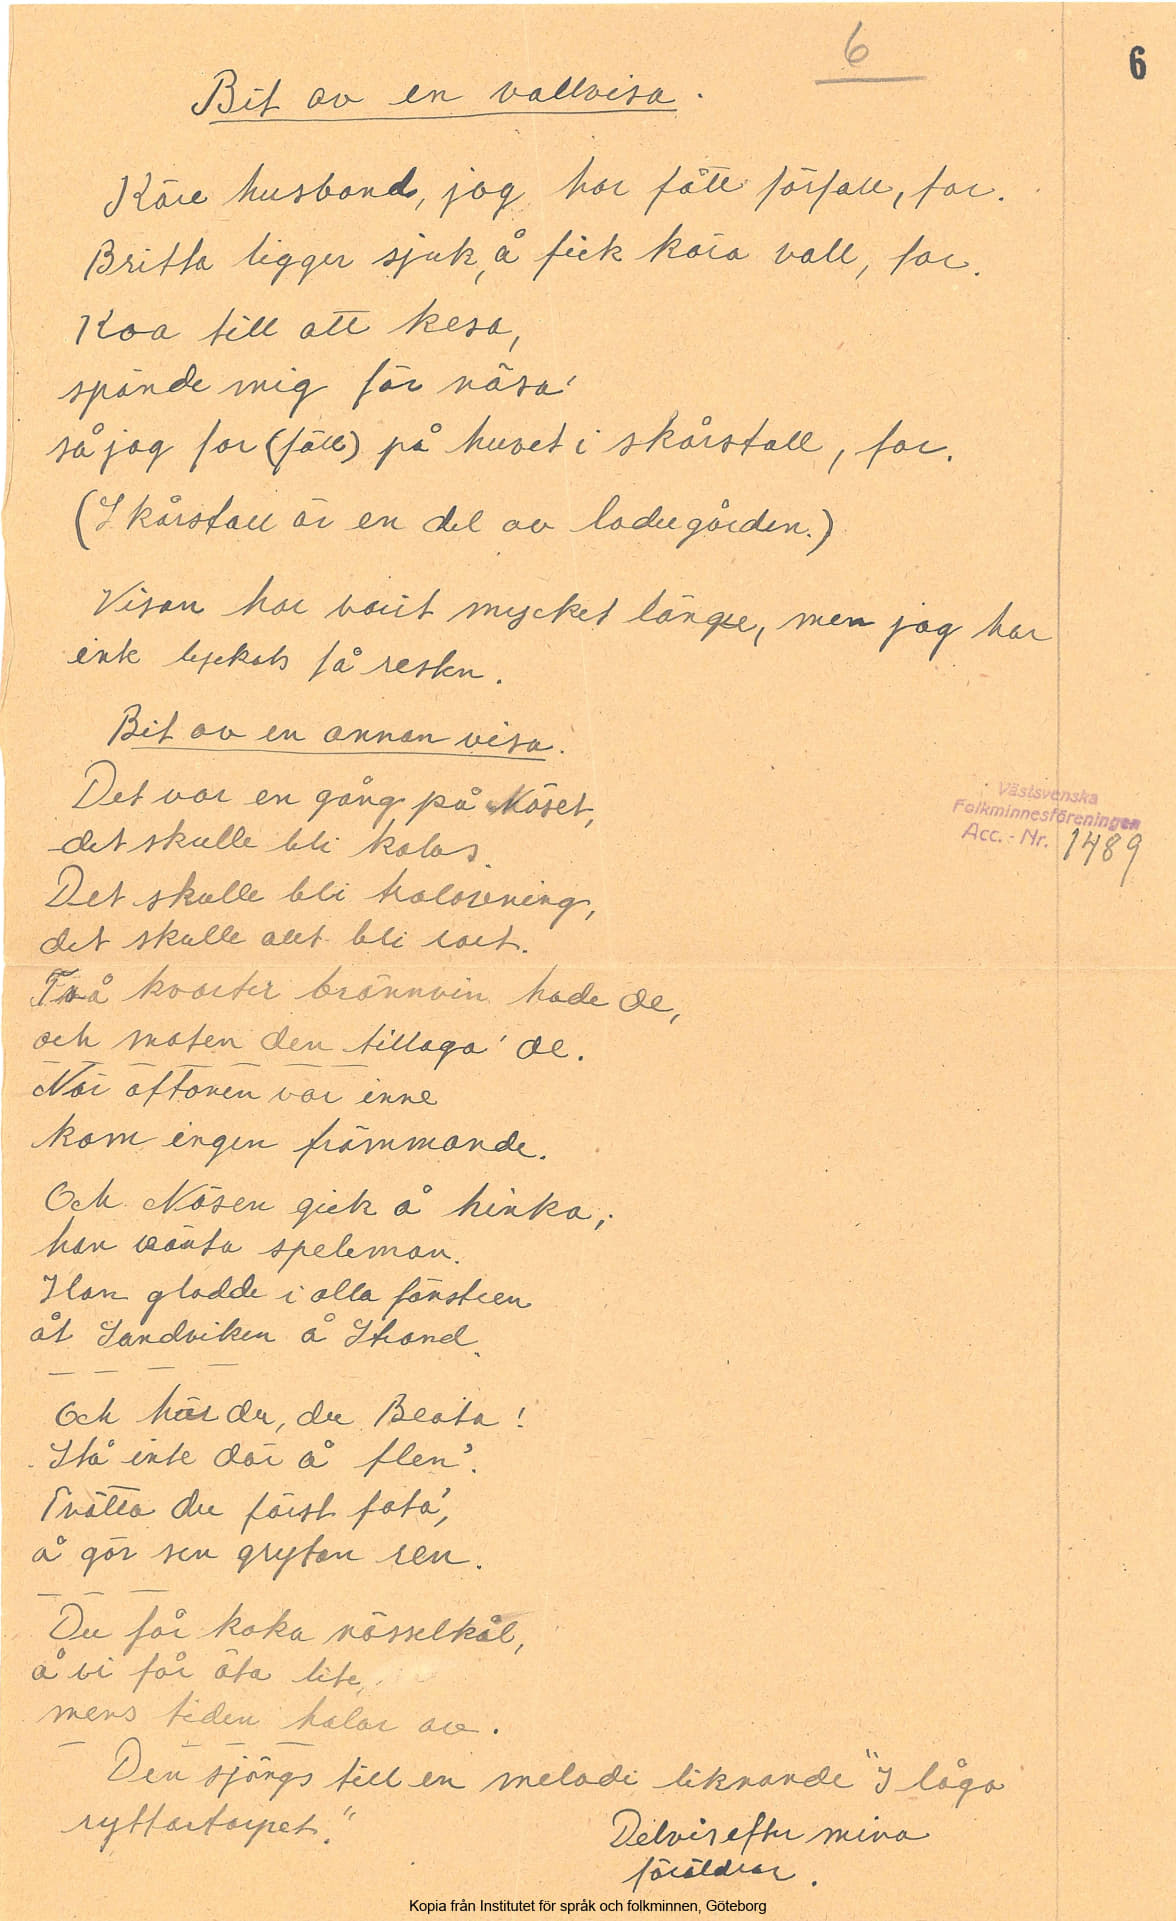 6
6
Bit av en vallvisa.
Käre husbond, jag har fått förfall, far.
Britta ligger sjuk, å fick köra vall, far.
Koa till att kesa,
spände mig för näsa'
så jag for (föll) på huvet i skårstall, far.
(Skårstall är en del av ladugården.)
Visan har varit mycket längre, men jag har
ink lyckats få resten.
Bit av en annan visa.
Det var en gång på Näset,
det skulle bli kalas.
Det skulle bli traktering,
det skulle allt bli rart.
Två kvarter brännvin hade de,
och maten den tillaga' de.
När aftonen var inne
kom ingen främmande.
Och Näsen gick å hinka,
han vänta speleman.
Han gladde i alla fönstren
åt Sandviken å Strand.
Och hör du, du Beata!
Stå inte där å flen'.
Tvätta du först fata',
å gör sen grytan ren.
Du får koka nässelkål,
å vi får äta lite,
mens tiden halar av.
Den sjöngs till en melodi liknande "I låga
ryttartorpet."
Delvis efter mina
föräldrar.
Västsvenska
Folkminnesföreningen
Acc. - Nr. 1489
Kopia från Institutet för språk och folkminnen, Göteborg